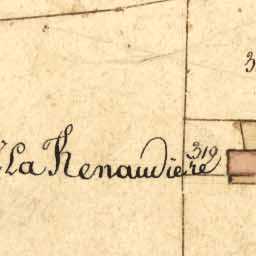 La Renaudière
319